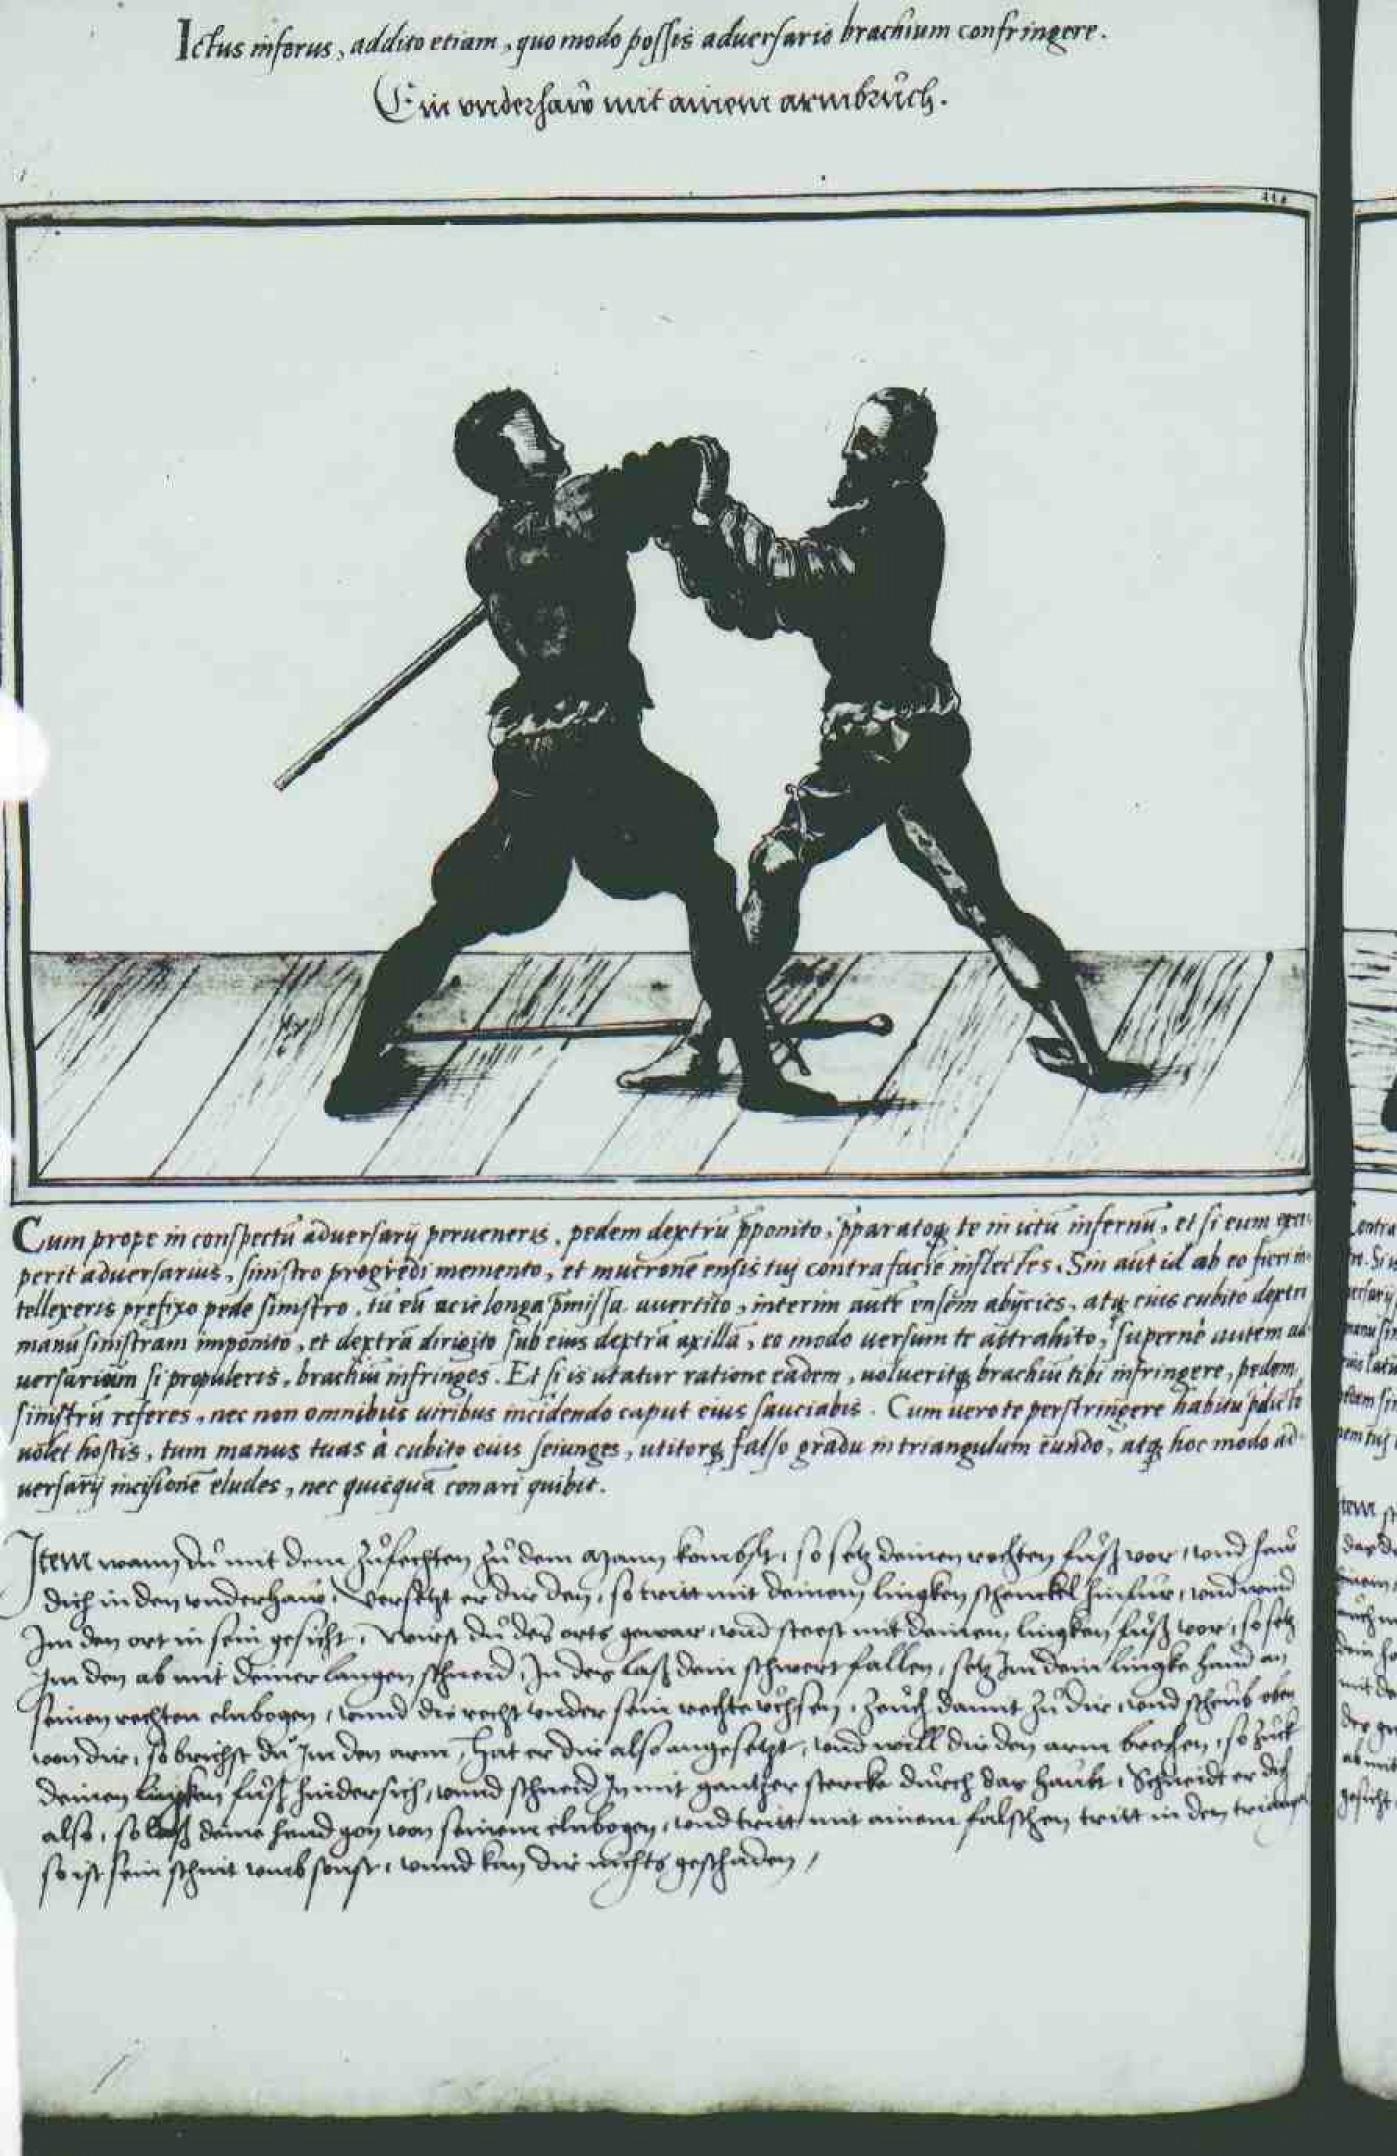 Ictus inferus, addito etiam, quo modo possis adversario brachium confringere.
Ein underhaw mit ainem armbrůch.
Cum prope in conspectū adversarij perveneris, pedem dextrū p̄ponito, p̄paratoq; te in ictū infernū, et si eum exce-
perit adversarius, sinistro progredi memento, et mucronē ensis tuj contra faciē inflectes. Sin aut id ab eo fieri in-
tellexeris prefixo pede sinistro, tū eū acie longa p̄missa avertito, interim autē ensēm abijcies, atq; eius cubito dextri
manū sinistram imponito, et dextrā dirigito sub eius dextrā axillā, eo modo versum te attrahito, supernè autem ad
versarium si propuleris, brachiū infringes. Et si is utatur ratione eadem, volueritq; brachiū tibi infringere, pedem
sinistrū referes, nec non omnibus viribus incidendo caput eius sauciabis. Cum vero te perstringere habitu p̄dicto
volet hostis, tum manus tuas à cubito eius seiunges, utitorq; falso gradu in triangulum eundo, atq; hoc modo ad-
versarij incisionē eludes, nec quicquā conari quibit.
Item wann dů mit dem zůfechten zů dem Mann kombst, so setz deinen rechten fůß vor, unnd haw
dich in den underhaw, versetzt er dir den, so tritt mit deinem lingken schenckel hinfur, unnd wind
Im den ort in sein gesicht, Wirst dů des orts gewar, unnd steest mit deinem lingken fůß vor, so setz
Im den ab mit deiner langen schneid, In des laß dein schwert fallen, setz Im dein lingke hand an
seinen rechten elnbogen, unnd die recht under sein rechte uchsen, zeuch damit zů dir, unnd scheub oben
von dir, so brichst dů Im den arm, Hat er dir also angesetzt, unnd will dir den arm brechen, so zuck
deinen lingken fůß hindersich, unnd schneid In mit gantzer stercke durch das haubt, Schneidt er dich
also, so laß deine hend gon von seinem elnbogen, unnd tritt mit ainem falschen tritt in den triangel
so ist sein schnit umb sonst, unnd kan dir nichts geschaden,